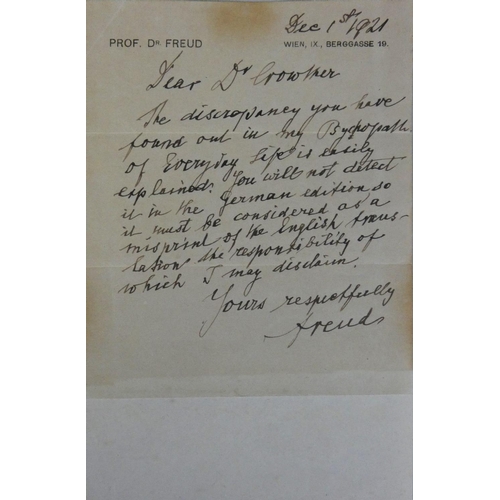 Dec 1st 1921
PROF. DR. FREUD
WIEN, IX., BERGGASSE 19.
Dear Dr Crowther
The discrepancy you have
found out in my Psychopath.
of Everyday Life is easily
explained. You will not detect
it in the German edition so
it must be considered as a
misprint of the English trans-
lation the responsibility of
which I may disclaim.
Yours respectfully
Freud